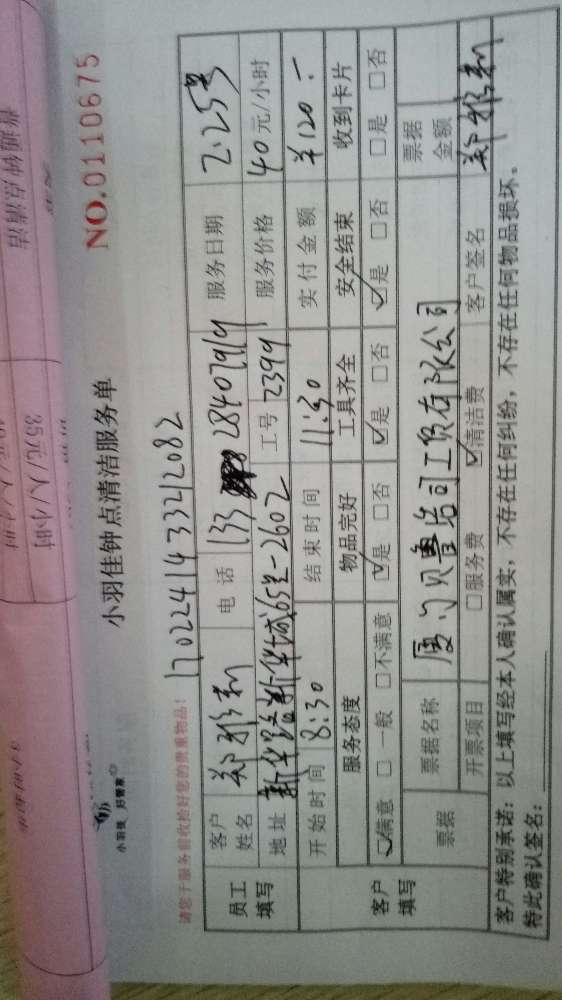 35元/人/小时
小羽佳 好管家
小羽佳钟点清洁服务单
NO.0110675
请您于服务前收拾好您的贵重物品!
17022414332120​82
员工填写
客户姓名 郑雅莉 电话 133 28407919 服务日期 2.25号
地址 新华路新华城65号-2602 工号 2399 服务价格 40元/小时
开始时间 8:30 结束时间 11:30 实付金额 ¥120.-
客户填写
服务态度 物品完好 工具齐全 安全结束 收到卡片
☑满意 □一般 □不满意 ☑是 □否 ☑是 □否 ☑是 □否 □是 □否
票据 票据名称 厦门贝鲁哈司工贸有限公司 票据金额
开票项目 □服务费 ☑清洁费 客户签名 郑雅莉
客户特别承诺:以上填写经本人确认属实,不存在任何纠纷,不存在任何物品损坏。
特此确认签名: